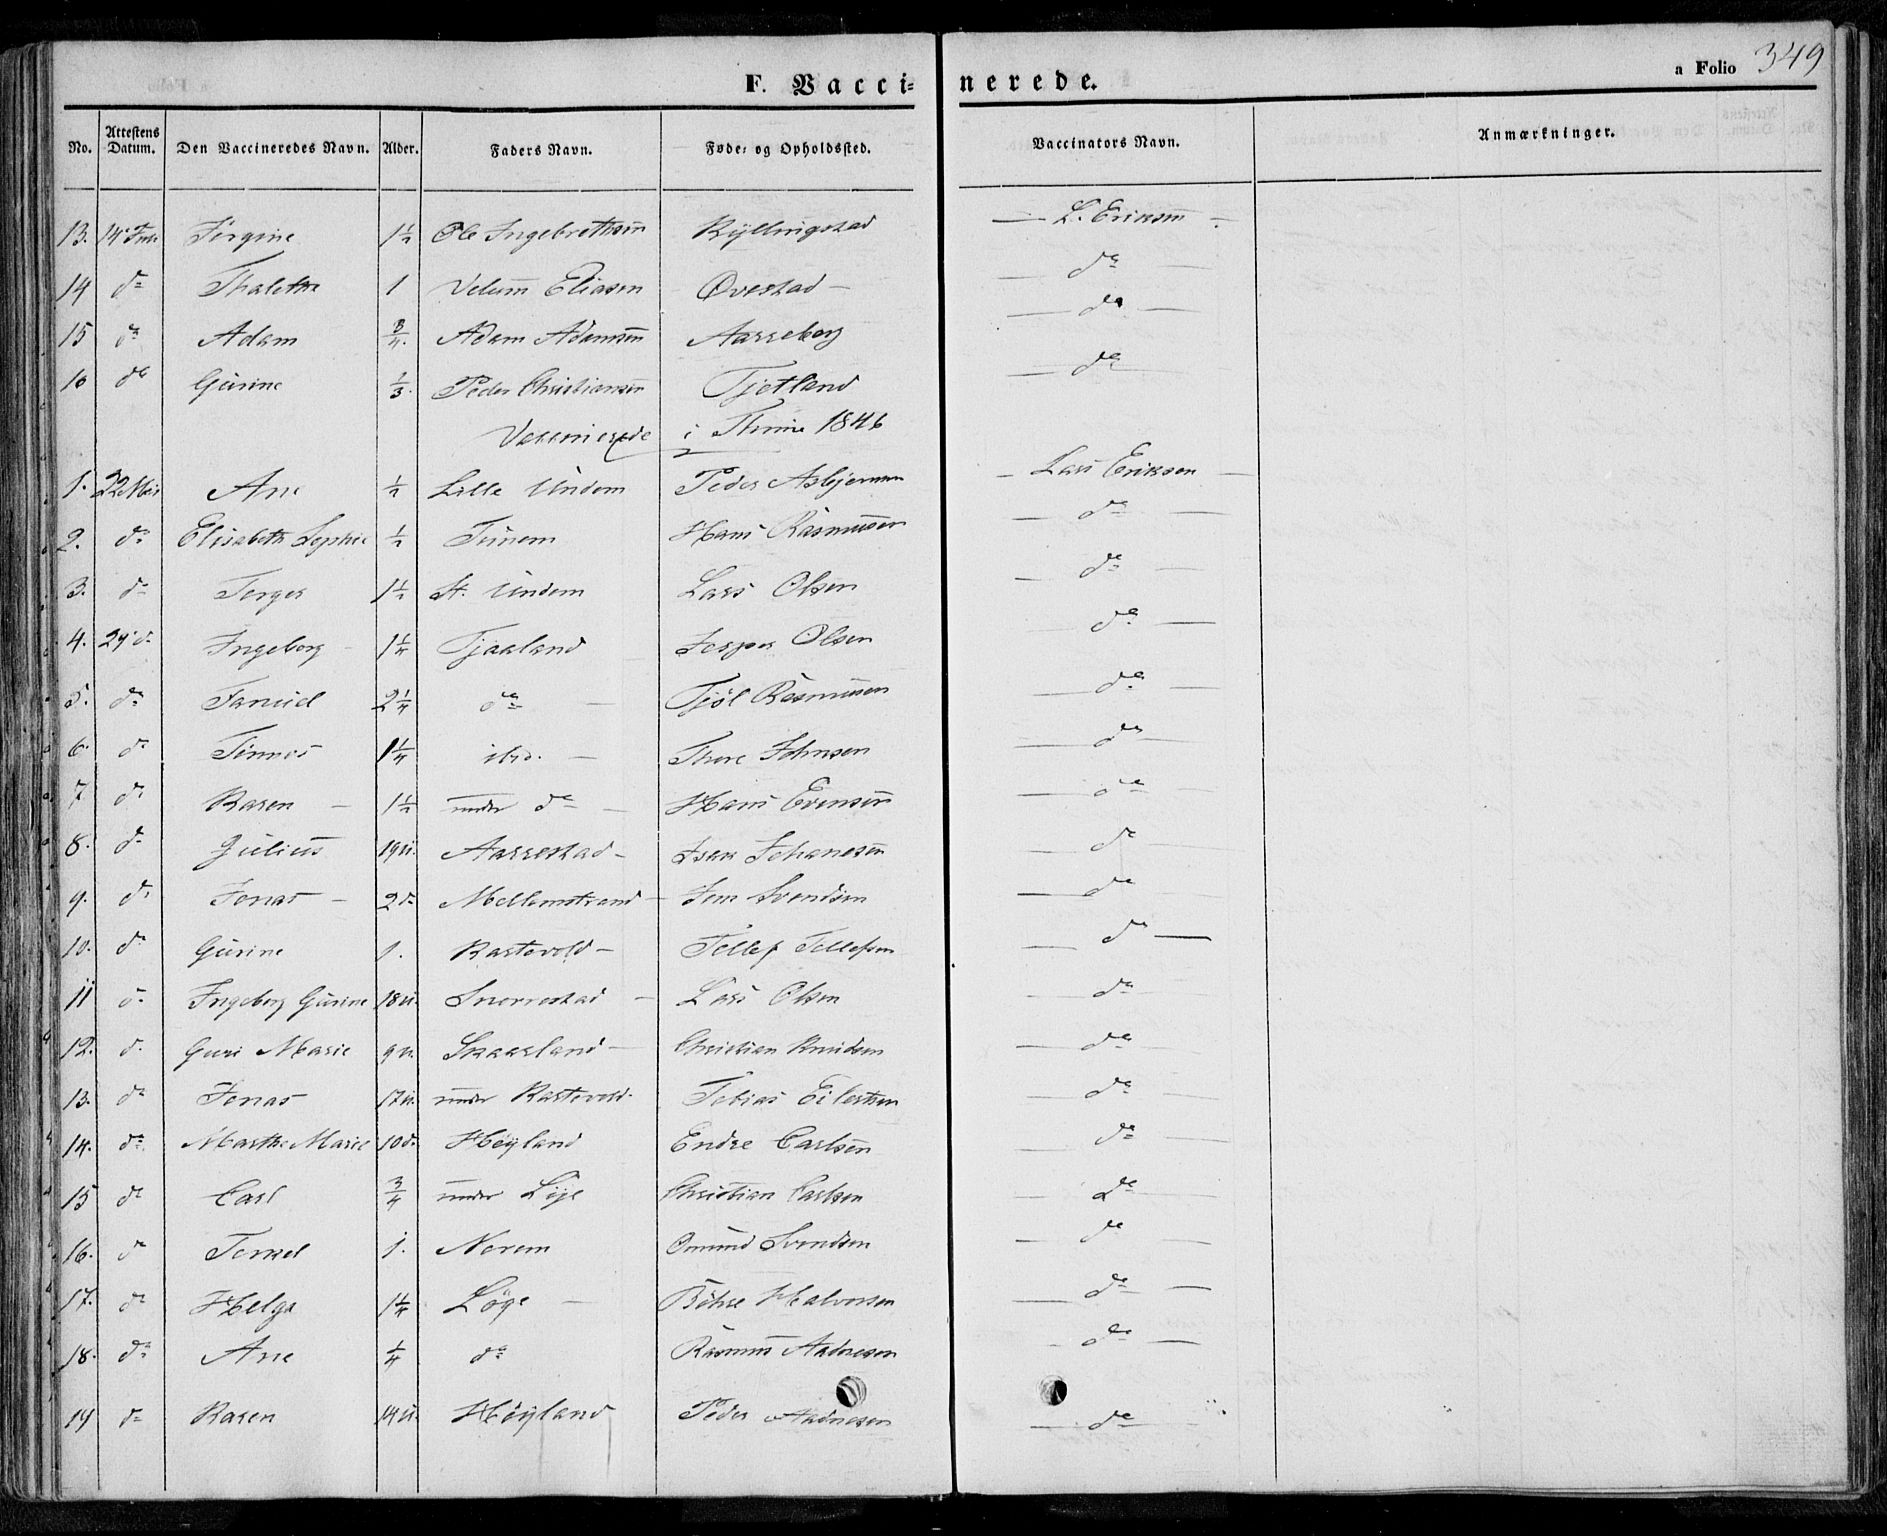 a Folio 349
F. Vacci= nerede.
No. Attestens Datum. Den Vaccineredes Navn. Alder. Faders Navn. Føde= og Opholdssted. Vaccinators Navn. Anmærkninger.
13. 14. Jørgine 1½ Ole Ingebrethsen Kyllingstad L. Eriksen
14 do Thalethe 1 Eliasen Ovestad do
15 do Adam ¾ Adam Adamsen Aarreberg do
16 do Gurine ⅓ Peder Christiansen Tjetland do
Vaccinerede i Thime 1846
1. 22 Mai Ane ½ Lille Undem Peder Asbjørnsen Lars Eriksen
2. do Elisabeth Sophie ½ Tunem Hans Rasmussen do
3. do Terger 1½ St. Undem Lars Olsen do
4. 29 do Ingeborg 1¼ Tjaaland Jesper Olsen do
5. do 2¼ do Tjøl Rasmussen do
6. do Tønnes 1¼ ibd. Thore Johnsen do
7 do Karen 1½ under do Hans Evensen do
8. do Julius 19 u. Aarrestad Isak Johanesen do
9. do Jonas 2 do Mellemstrand Svendsen do
10. do Gurine 1. Kartevold Tellef Tellefsen do
11 do Ingeborg Gurine 18 u. Snorrestad Lars Olsen do
12. do Guri Marie 9 u. Skaarland Christian Knudsen do
13. do Jonas 17 u. under Kartevold Tobias Eilertsen do
14. do Marthe Marie 10 do Høyland Endre Carlsen do
15 do Carl ¾ under Løge Christian Carlsen do
16. do Torkel 1. Norem Omund Svendsen do
17. do Helga 1¼ Løge Halvorsen do
18. do Ane ¼ do Rasmus Aadnesen do
19 do Karen 14 u. Høyland Peder Aadnesen do